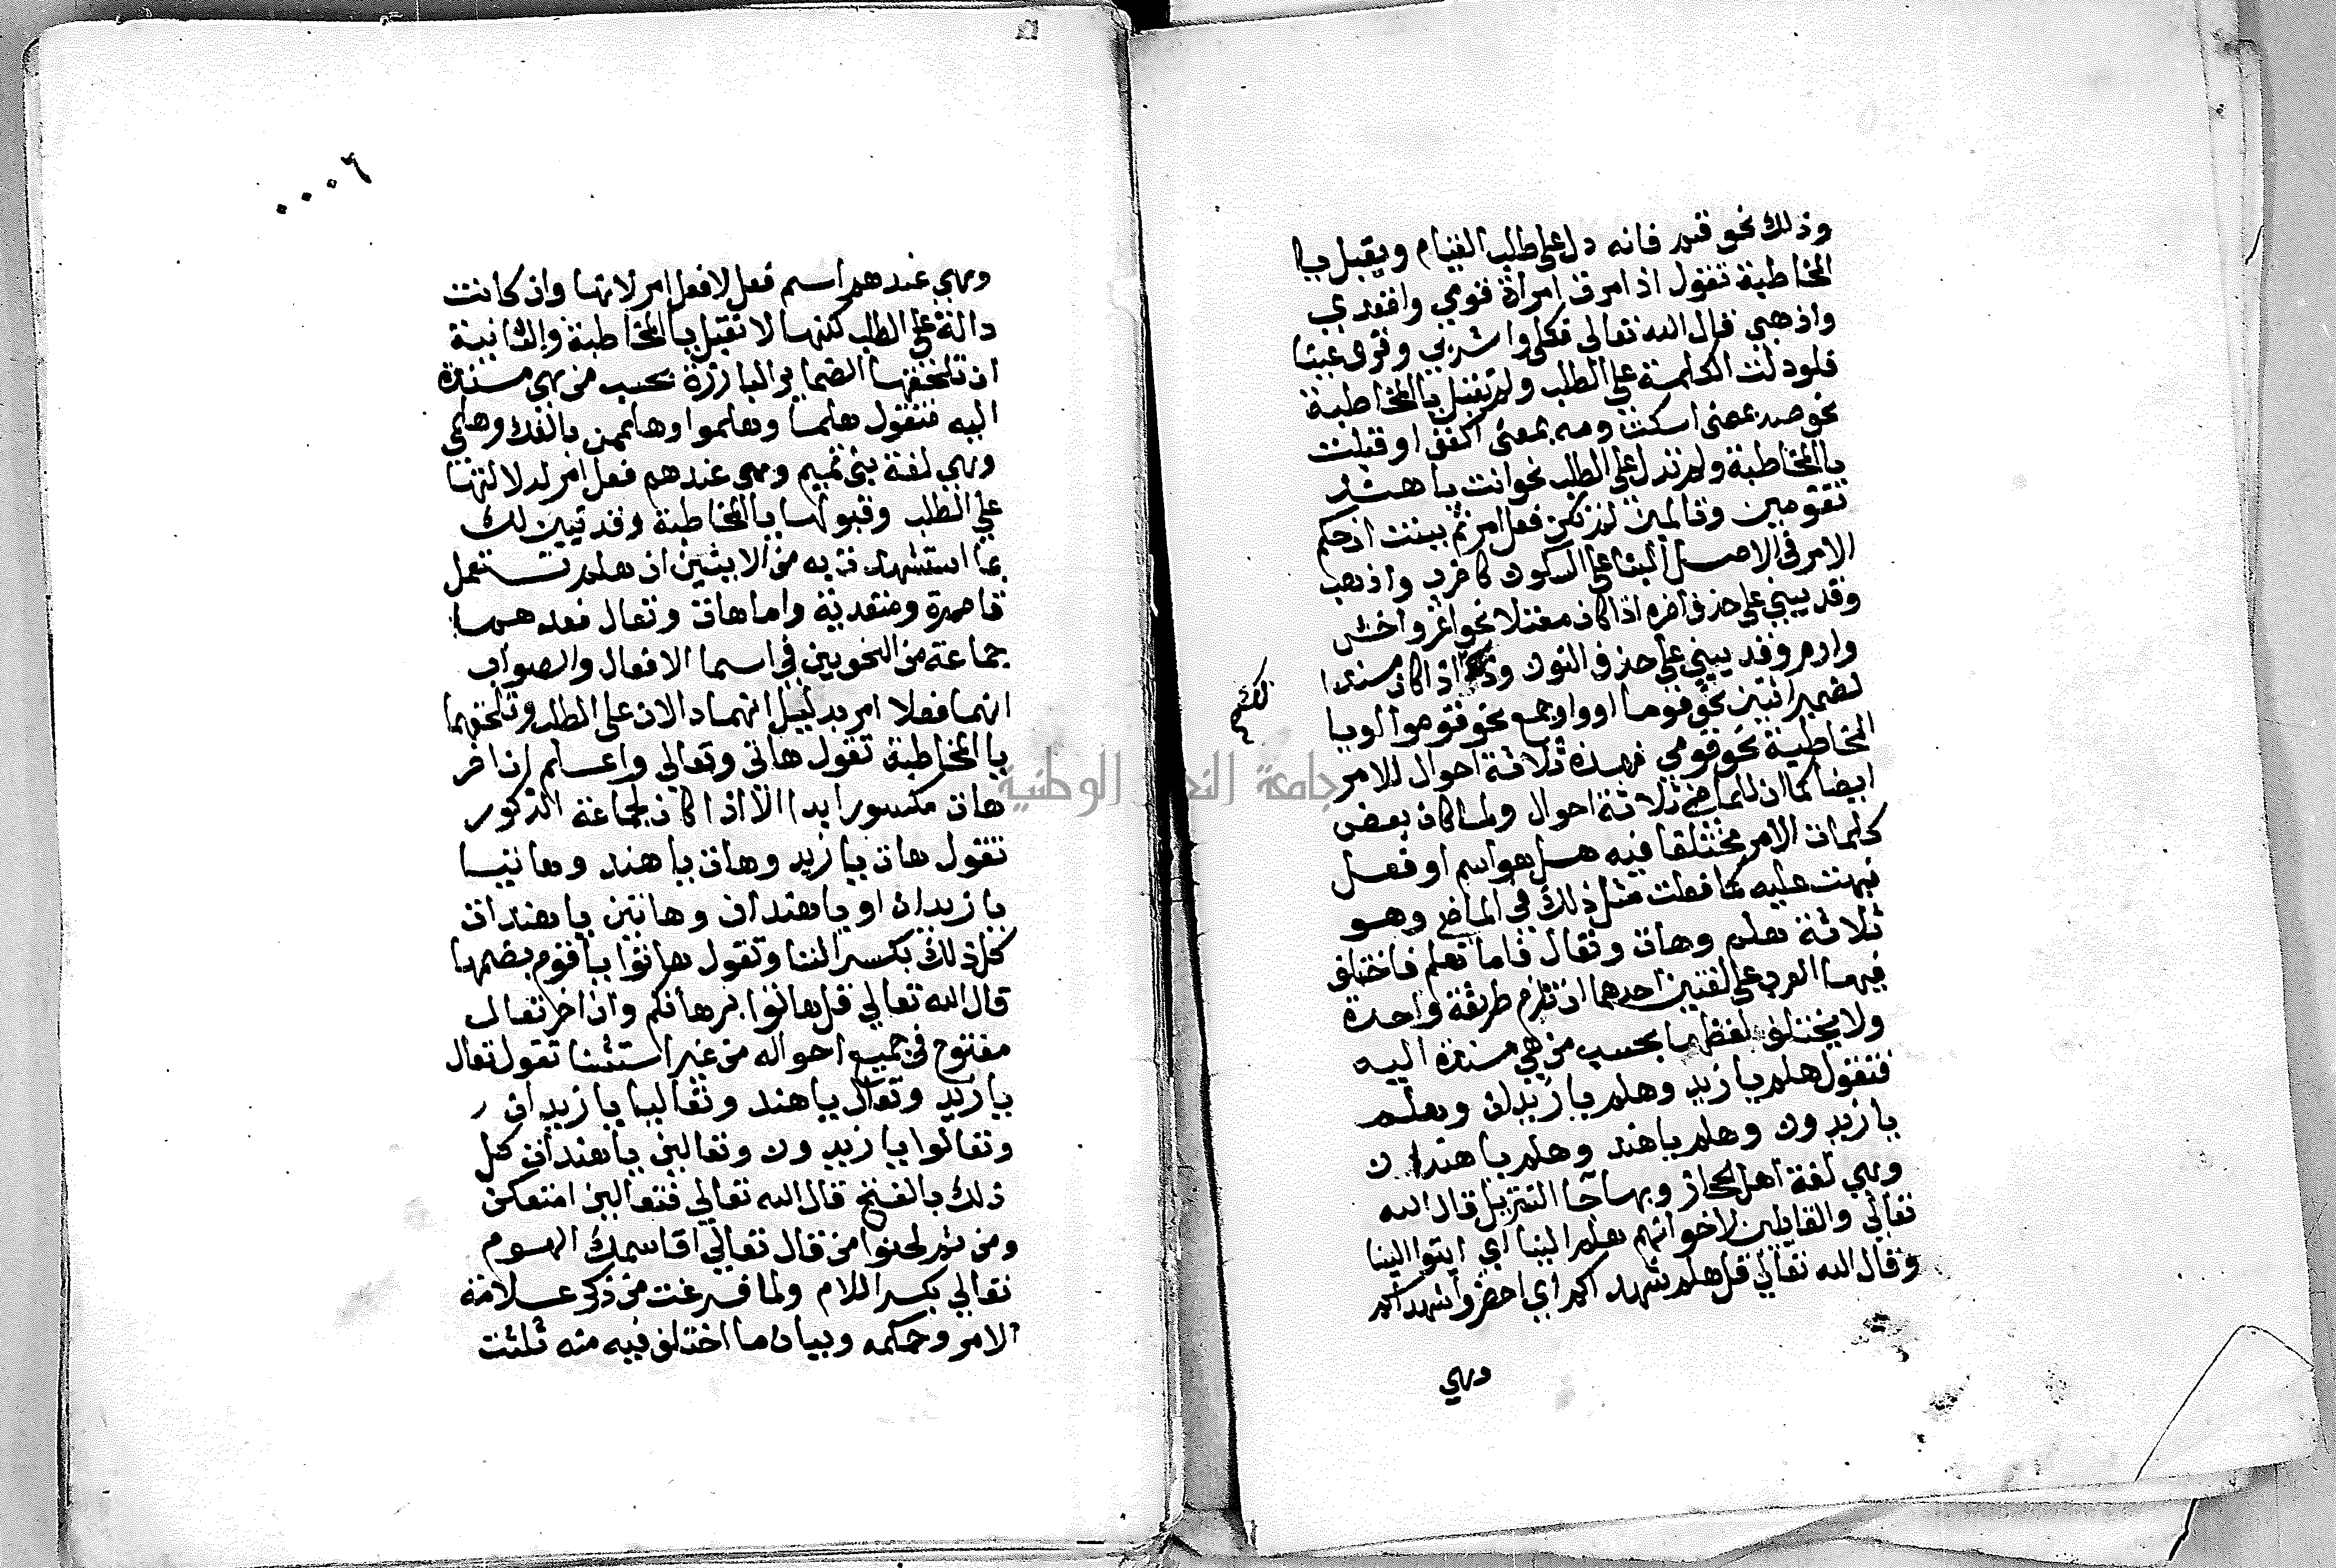 وذلك نحو قم فانه دل على طلب القيام ويقبل يا
المخاطبة تقول اذ امرت امراة قومي واقعدي
واذهبي قال الله تعالى فكلي واشربي وقري عينا
فلو دلت الكلمة على الطلب ولم تقبل يا المخاطبة
نحو صه بمعنى اسكت ومه بمعنى اكفف او قبلت
يا المخاطبة ولم تدل على الطلب نحو انت يا هند
تقومين وتاكلين لم تكن فعل امر ثم بينت ان حكم
الامر في الاصل البنا على السكون كاضرب واذهب
وقد يبنى على حذف اخره اذا كان معتلا نحو اغز واخش
وارم وقد يبني على حذف النون وذلك اذا كان مسندا
لضمير اثنين نحو قوما او واو جمع نحو قوموا او يا
المخاطبة نحو قومي فهذه ثلاثة احوال للامر
ايضا كما ان للماضي ثلاثة احوال ولما كان بعض
كلمات الامر مختلفا فيه هل هو اسم او فعل
نبهت عليه كما فعلت مثل ذلك في الماضي وهو
ثلاثة هلم وهات وتعال فاما هلم فاختلف
فيها العرب على لغتين احدهما ان تلزم طريقة واحدة
ولا يختلف لفظها بحسب من هي مسندة اليه
فتقول هلم يا زيد وهلم يا زيدان وهلم
يا زيدون وهلم يا هند وهلم يا هندان
وهي لغة اهل الحجاز وبها جا التنزيل قال الله
تعالى والقايلين لاخوانهم هلم الينا اي ايتوا الينا
وقال الله تعالي قل هلم شهداكم اي احضروا شهداكم
وهي
لكم
٠٠٠٦
وهي عندهم اسم فعل لا فعل امر لانها وان كانت
دالة على الطلب لكنها لا تقبل يا المخاطبة والثانية
ان تلحقها الضماير البارزة بحسب من هي مسندة
اليه فتقول هلما وهلموا وهلممن بالفك وهلمي
وهي لغة بني تميم وهي عندهم فعل امر لدلالتها
على الطلب وقبولها يا المخاطبة وقد تبين لك
بما استشهدت به من الايتين ان هلم تستعمل
قاصرة ومتعدية واما هات وتعال فعدهما
جماعة من النحويين في اسما الافعال والصواب
انهما فعلا امر بدليل انهما دالان على الطلب وتلحقهما
يا المخاطبة تقول هاتي وتعالي واعلم ان اخر
هات مكسور ابدا الا اذا كان لجماعة الذكور
تقول هات يا زيد وهات يا هند وهاتيا
يا زيدان او يا هندان وهاتين يا هندات
كل ذلك بكسر التا وتقول هاتوا يا قوم بضمها
قال الله تعالي قل هاتوا برهانكم وان اخر تعال
مفتوح في جميع احواله من غير استثنا تقول تعال
يا زيد وتعال يا هند وتعاليا يا زيدان
وتعالوا يا زيدون وتعالين يا هندات كل
ذلك بالفتح قال الله تعالي فتعالين امتعكن
ومن ثم لحنوا من قال تعالي اقاسمك الهموم
تعالي بكسر اللام ولما فرغت من ذكر علامة
الامر وحكمه وبيان ما اختلف فيه منه ثلثت
جامعة النجاح الوطنية